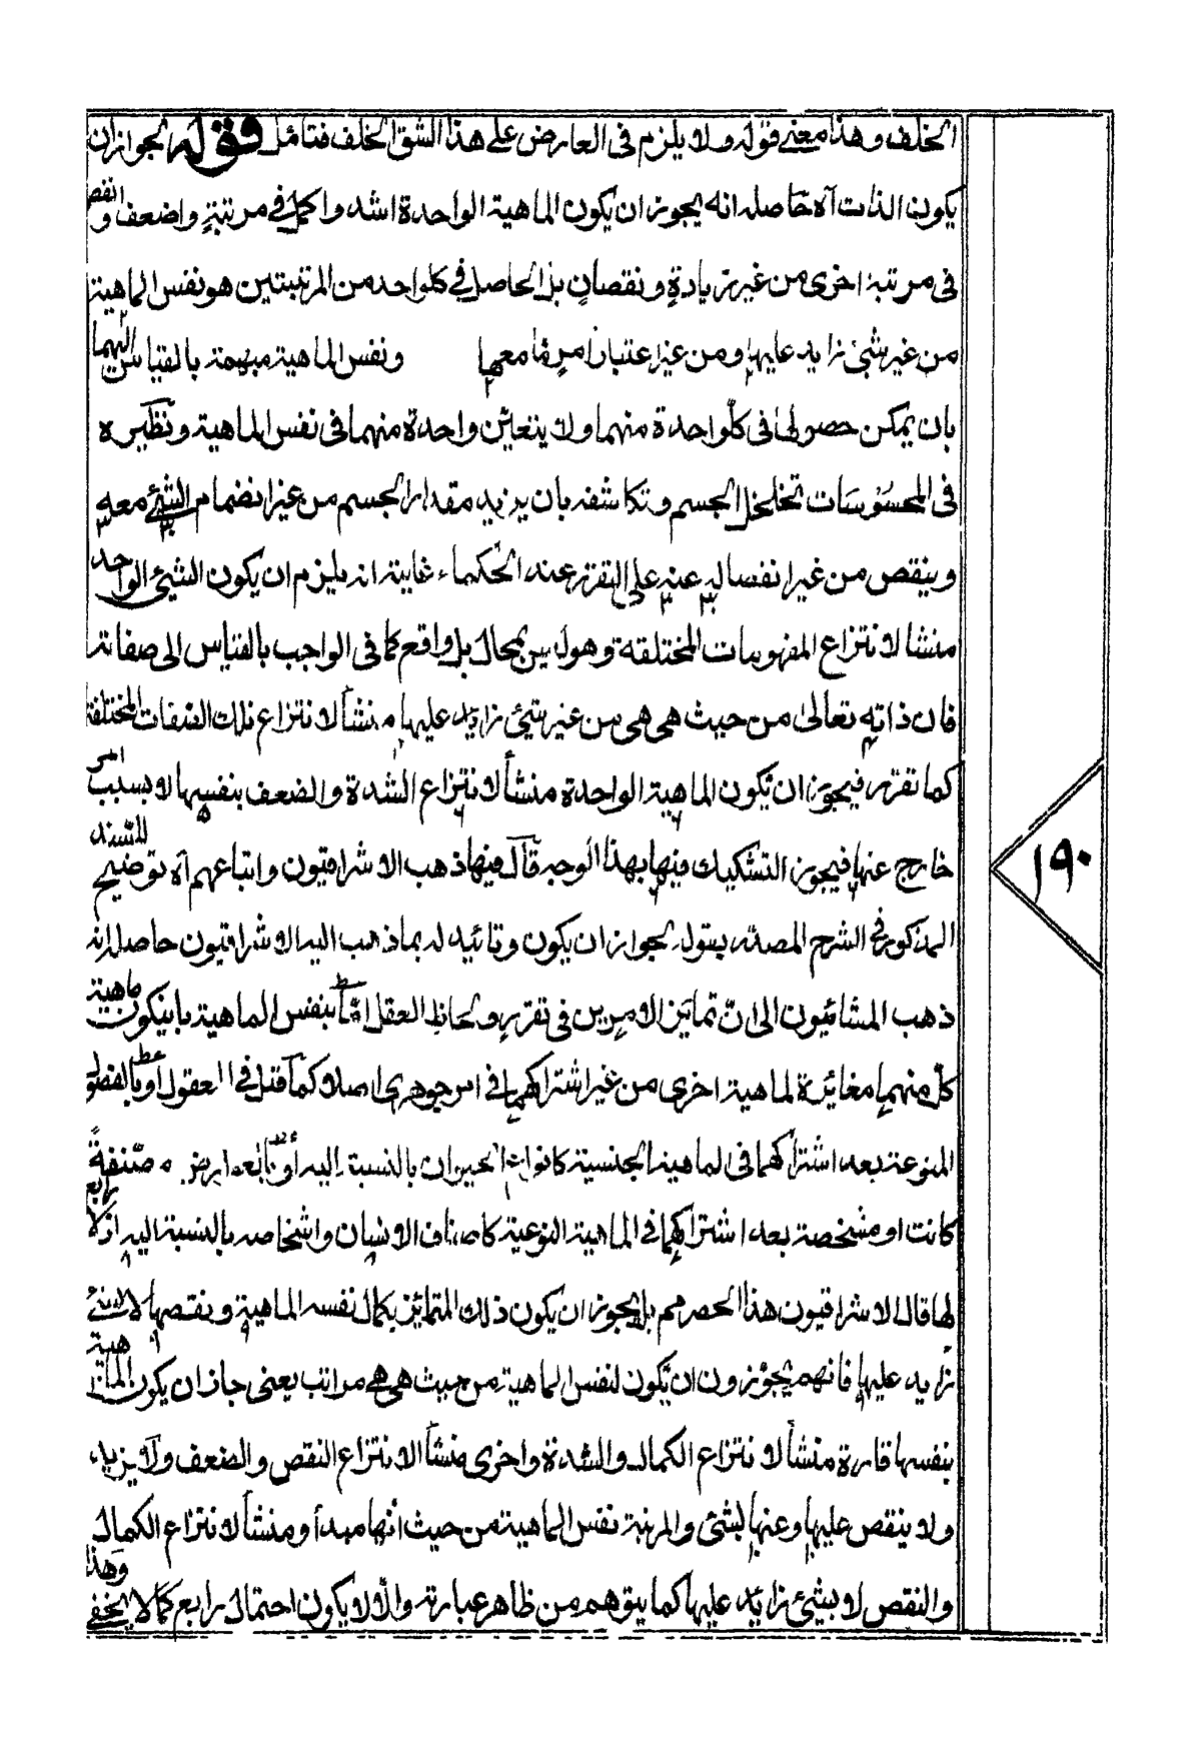 الخلف وهذا معنى قوله ولا يلزم فى العارض على هذا الشق الخلف فتامل قوله الجواز ان
يكون الذات آه حاصله انه يجوز ان يكون الماهية الواحدة اشد واكمل فى مرتبة واضعف وانقص
فى مرتبة اخرى من غير زيادة ونقصان بل الحاصل فى كلواحد من المرتبتين هو نفس الماهية
من غير شئ زايد عليها ومن غير اعتبار امر ما معها ونفس الماهية مبهمة بالقياس اليهما
بان يمكن حصولها فى كلواحدة منهما ولا يتعين واحدة منهما فى نفس الماهية ونظيره
فى المحسوسات تخلخل الجسم وتكاثفه بان يزيد مقدار الجسم من غير انضمام الشئ معه
وينقص من غير انفصاله عنه على التقرر عند الحكماء غايته انه يلزم ان يكون الشئ الواحد
منشا لانتزاع المفهومات المختلفة وهو ليس بمحال بل واقع كما فى الواجب بالقياس الى صفاته
فان ذاته تعالى من حيث هى هى من غير شئ زايد عليها منشأ لانتزاع تلك الصفات المختلفة
كما تقرر فيجوز ان تكون الماهية الواحدة منشأ لانتزاع الشدة والضعف بنفسها لا بسبب امر
خارج عنها فيجوز التشكيك فيها بهذا الوجه قال فيها ذهب الاشراقيون واتباعهم آه توضيح للسند
المذكور فى الشرح المصدر بقوله لجواز ان يكون وتائيد له بما ذهب اليه الاشراقيون حاصله انه
ذهب المشائيون الى ان تمايز الامرين فى تقرره ولحاظ العقل اما بنفس الماهية بان يكون ماهية
كل منهما مغائرة لماهية اخرى من غير اشتراكهما فى امر جوهرى اصلا كما قيل فى العقول او بالفصول
المنوعة بعد اشتراكهما فى الماهية الجنسية كانواع الحيوان بالنسبة اليه أو بالعوارض مصنفة
كانت او مشخصة بعد اشتراكهما فى الماهية النوعية كاصناف الانسان واشخاصه بالنسبة اليه اذ لا رابع
لها قال الاشراقيون هذا الحصر مم بل يجوز ان يكون ذلك التمايز بكمال نفسه الماهية ونقصها لا لشئ
زايد عليها فانهم يجوزون ان تكون لنفس الماهية من حيث هى هى مراتب يعنى جاز ان يكون الماهية
بنفسها تارة منشأ لانتزاع الكمال والشدة واخرى منشأ لانتزاع النقص والضعف ولا يزيد
ولا ينقص عليها وعنها بشئ والمرتبة نفس الماهية من حيث انها مبدأ ومنشأ لانتزاع الكمال
والنقص لا بشئ زايد عليها كما يتوهم من ظاهر عبارته والا لا يكون احتمال رابع كما لا يخفى وهذا
١٩٠